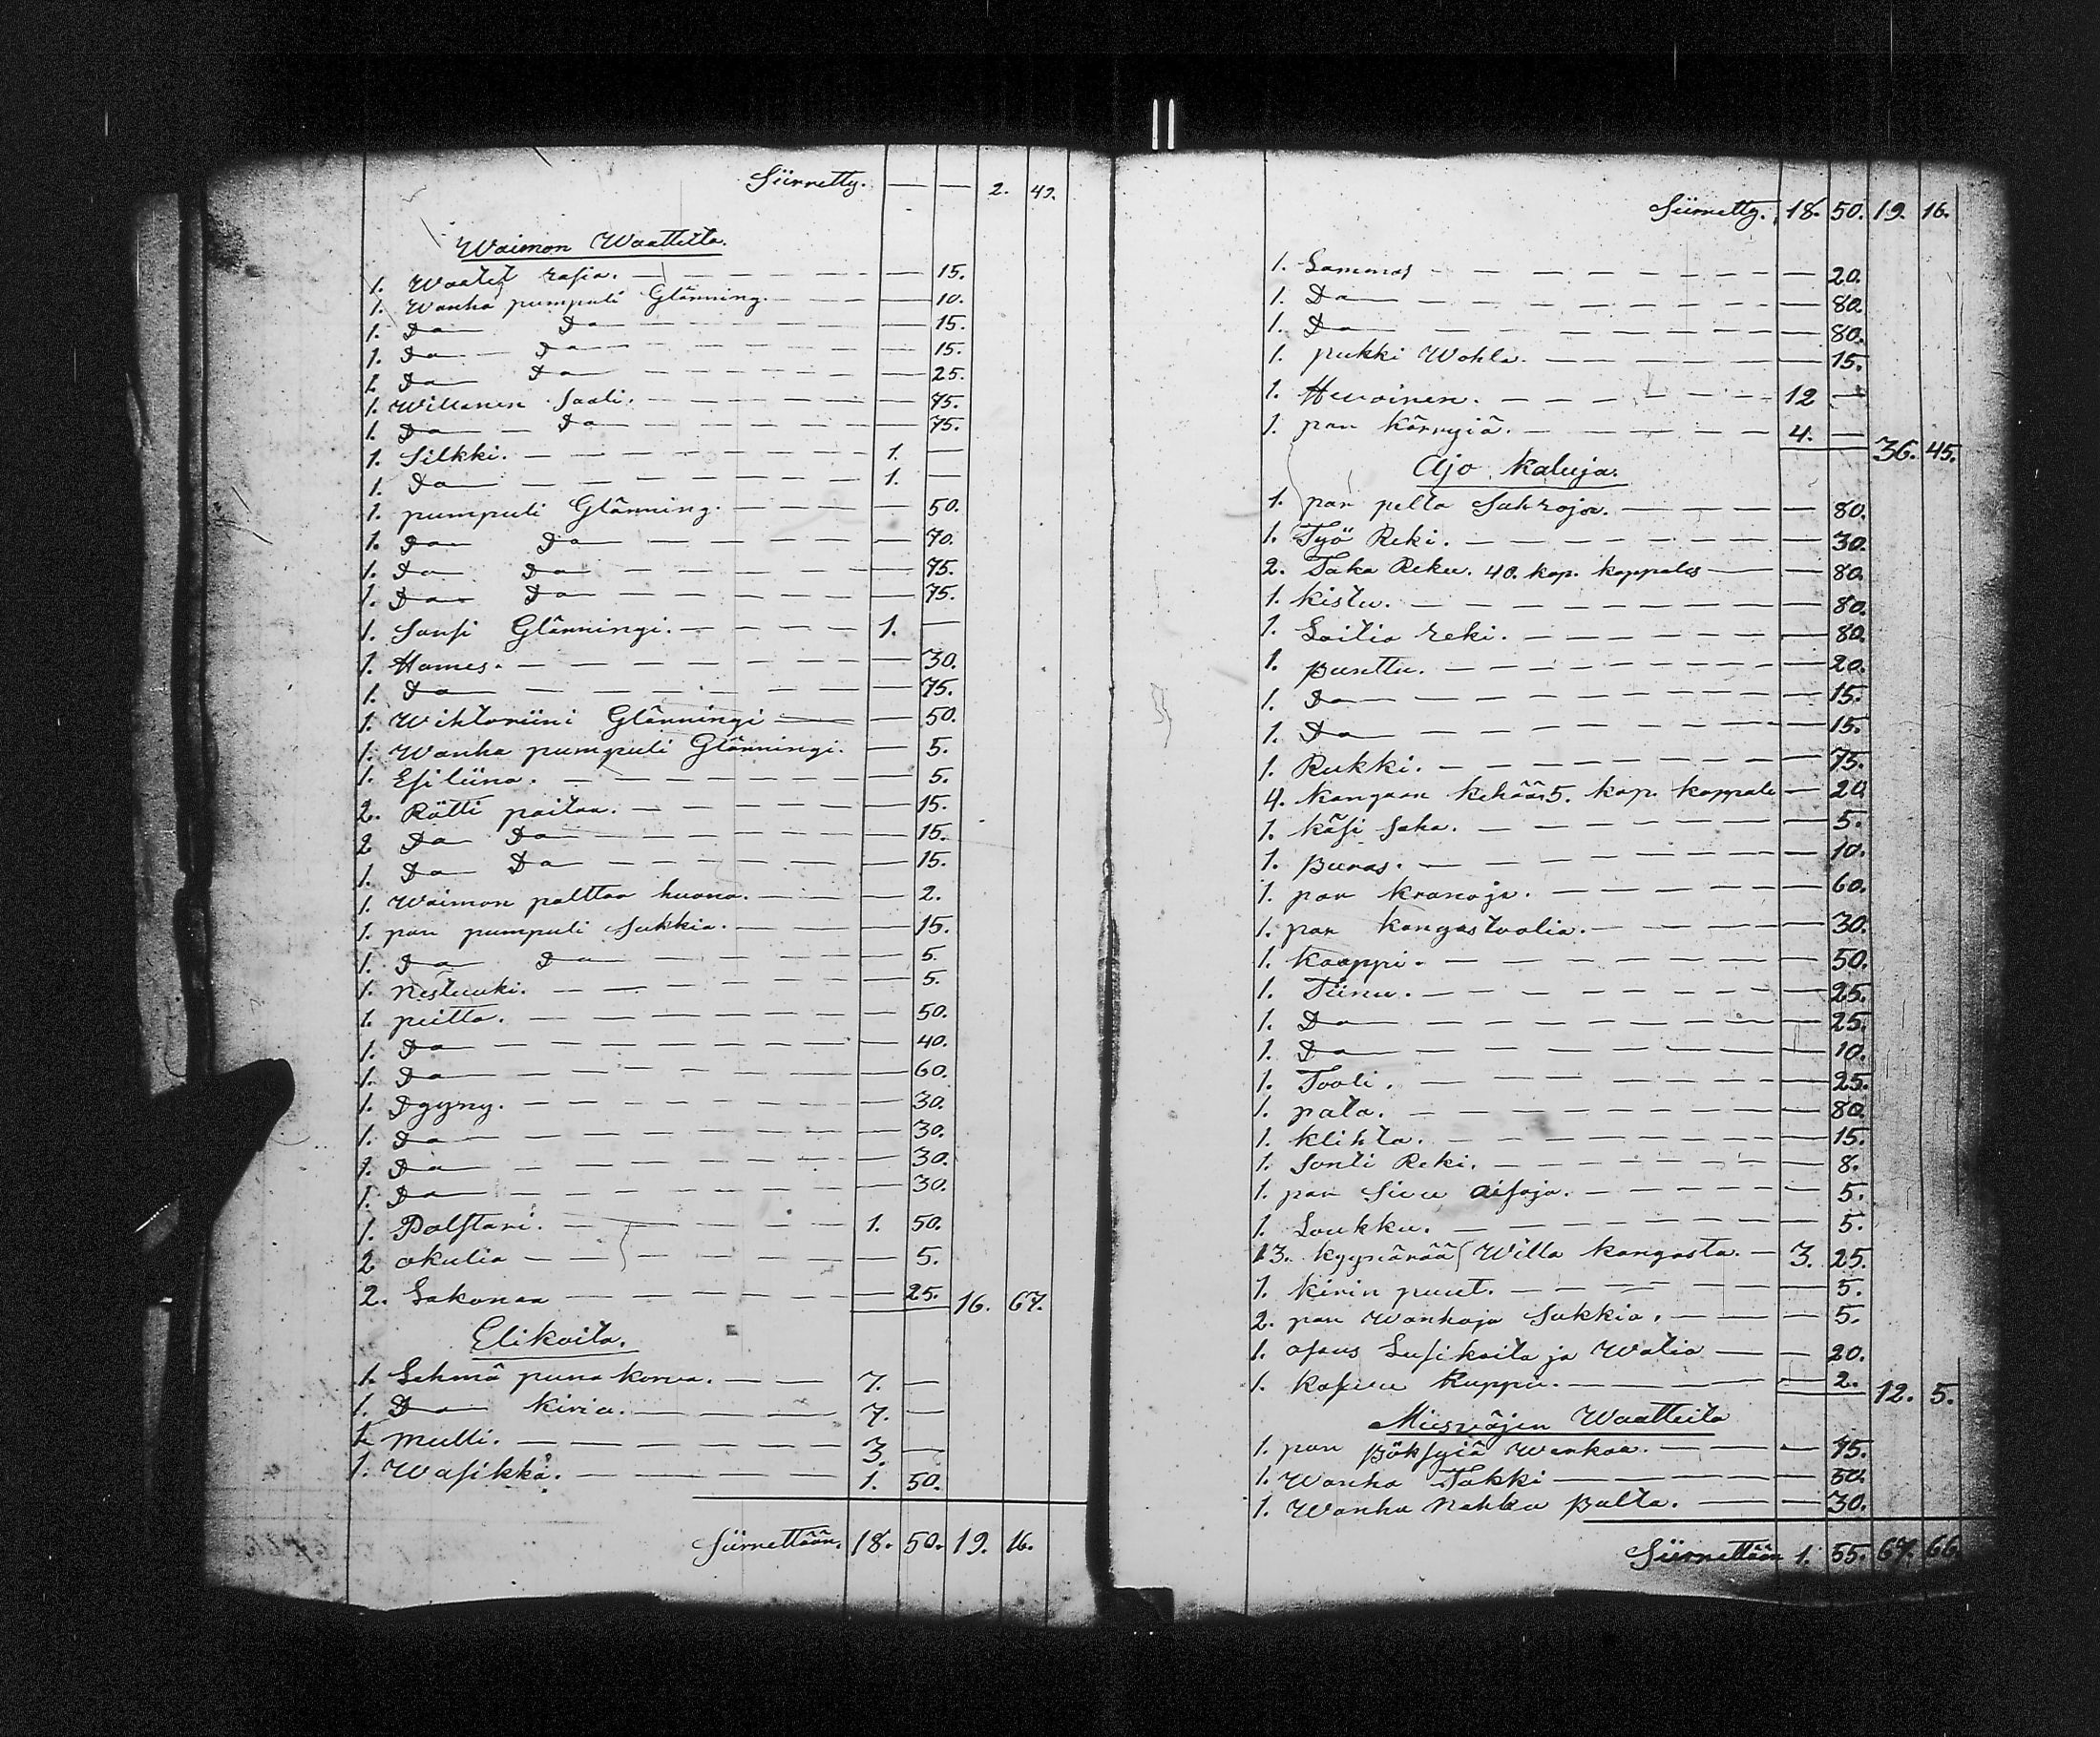 Siirretty. — — 2. 49.
Waimon Waatteita.
1. Waatet rasia. — — 15.
1. Wanha pumpuli Glänning. — — 10.
1. Do Do — — 15.
1. Do Do — — 15.
1. Do Do — — 25.
1. Willanen Saali. — — 75.
1. Do Do — — 75.
1. Silkki. — 1. —
1. Do — 1. —
1. pumpuli Glänning. — — 50.
1. Do Do — — 70.
1. Do Do — — 75.
1. Do Do — — 75.
1. Sansi Glänningi. — 1. —
1. Hames. — — 30.
1. Do — — 75.
1. Wiktoriini Glänningi — — 50.
1. Wanha pumpuli Glänningi. — 5.
1. Esiliina. — — 5.
2. Rätti paitaa. — — 15.
2 Do Do — — 15.
1. Do Do — — 15.
1. Waimon palttoo huono. — — 2.
1. par pumpuli Sukkia. — — 15.
1. Do Do — — 5.
1. Nästuuki. — — 5.
1. peitto. — — 50.
1. Do — — 40.
1. Do — — 60.
1. Dyyny. — — 30.
1. Do — — 30.
1. Do — — 30.
1. Do — — 30.
1. Polstari. — 1. 50.
2 akulia — — 5.
2. Lakonaa — — 25. 16. 67.
Elikoita.
1. Lehmä puna korva. — 7. —
1. Do kirio. — 7. —
1. Mulli. — 3. —
1. Wasikka. — 1. 50.
Siirrettään. 18. 50. 19. 16.
Siirretty. 18. 50. 19. 16.
1. Lammas — — 20.
1. Do — — 80.
1. Do — — 80.
1. pukki Wohla. — — 15.
1. Hevoinen. — 12 —
1. par kärryiä. — 4. — 36. 45.
Ajo kaluja.
1. par pelto Sahroja. — — 80.
1. Työ Reki. — — 30.
2. Taka Rekee. 40. kop. kappales — — 80.
1. kistu. — — 80.
1. Laitio reki. — — 80.
1. Punttu. — — 20.
1. Do — — 15.
1. Do — — 15.
1. Rukki. — — 75.
4. kangaan kehää 5. kop. kappale — 20.
1. käsi saha. — — 5.
1. Puras. — — 10.
1. par kranoja. — — 60.
1. par kangastoolia. — — 30.
1. kaappi. — — 50.
1. Tiinu. — — 25.
1. Do — — 25.
1. Do — — 10.
1. Tooli. — — 25.
1. pata. — — 80.
1. klihta. — — 15.
1. Sonti Reki. — — 8.
1. par Sivu aisoja. — — 5.
1. Loukku. — — 5.
13. kyynärää Willa kangasta. — 3. 25.
1. kirin puut. — — 5.
2. par Wanhoja Sukkia. — — 5.
1. osaus Lusikoita ja Watia — — 20.
1. kasveu kuppia. — — 2. 12. 5.
Miesväjen Waatteita
1. par Böksyiä Werkaa. — — 75.
1. Wanha Takki — — 50.
1. Wanha Nahka Palto. — — 30.
Siirrettään 1. 55. 67. 66.